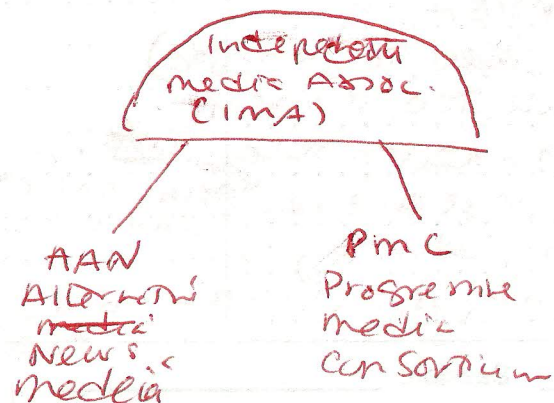 Independent
media Assoc.
(IMA)
AAN
Alternative
media
News
media
PMC
Progressive
media
consortium